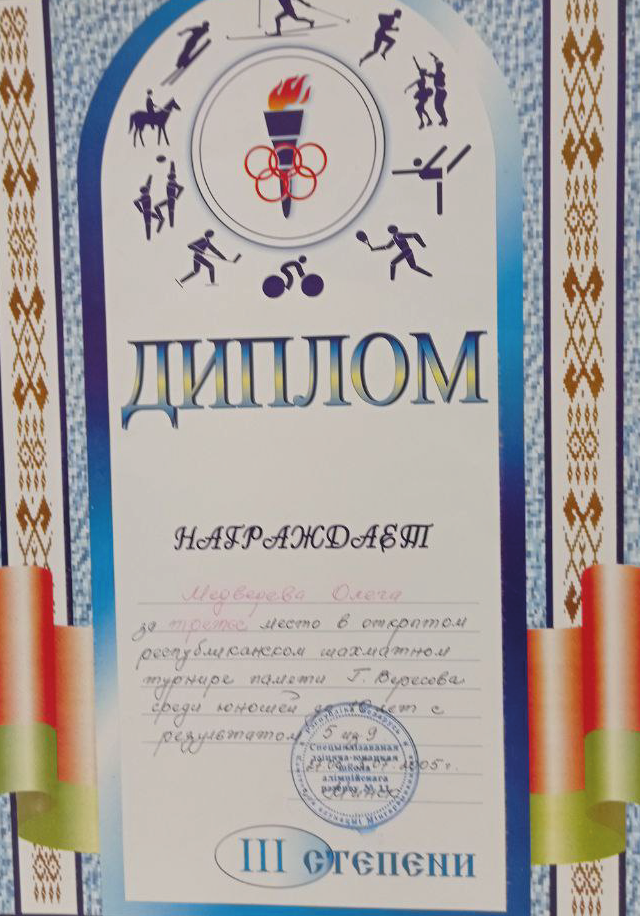 ДИПЛОМ
НАГРАЖДАЕТ
Медведева Олега
за третье место в открытом
республиканском шахматном
турнире памяти Г. Вересова
среди юношей до лет с
результатом 5 из 9
2005 г.
Рэспубліка Беларусь
Спецыялізаваная
дзіцяча-юнацкая
школа
алімпійскага
рэзерву №
III СТЕПЕНИ